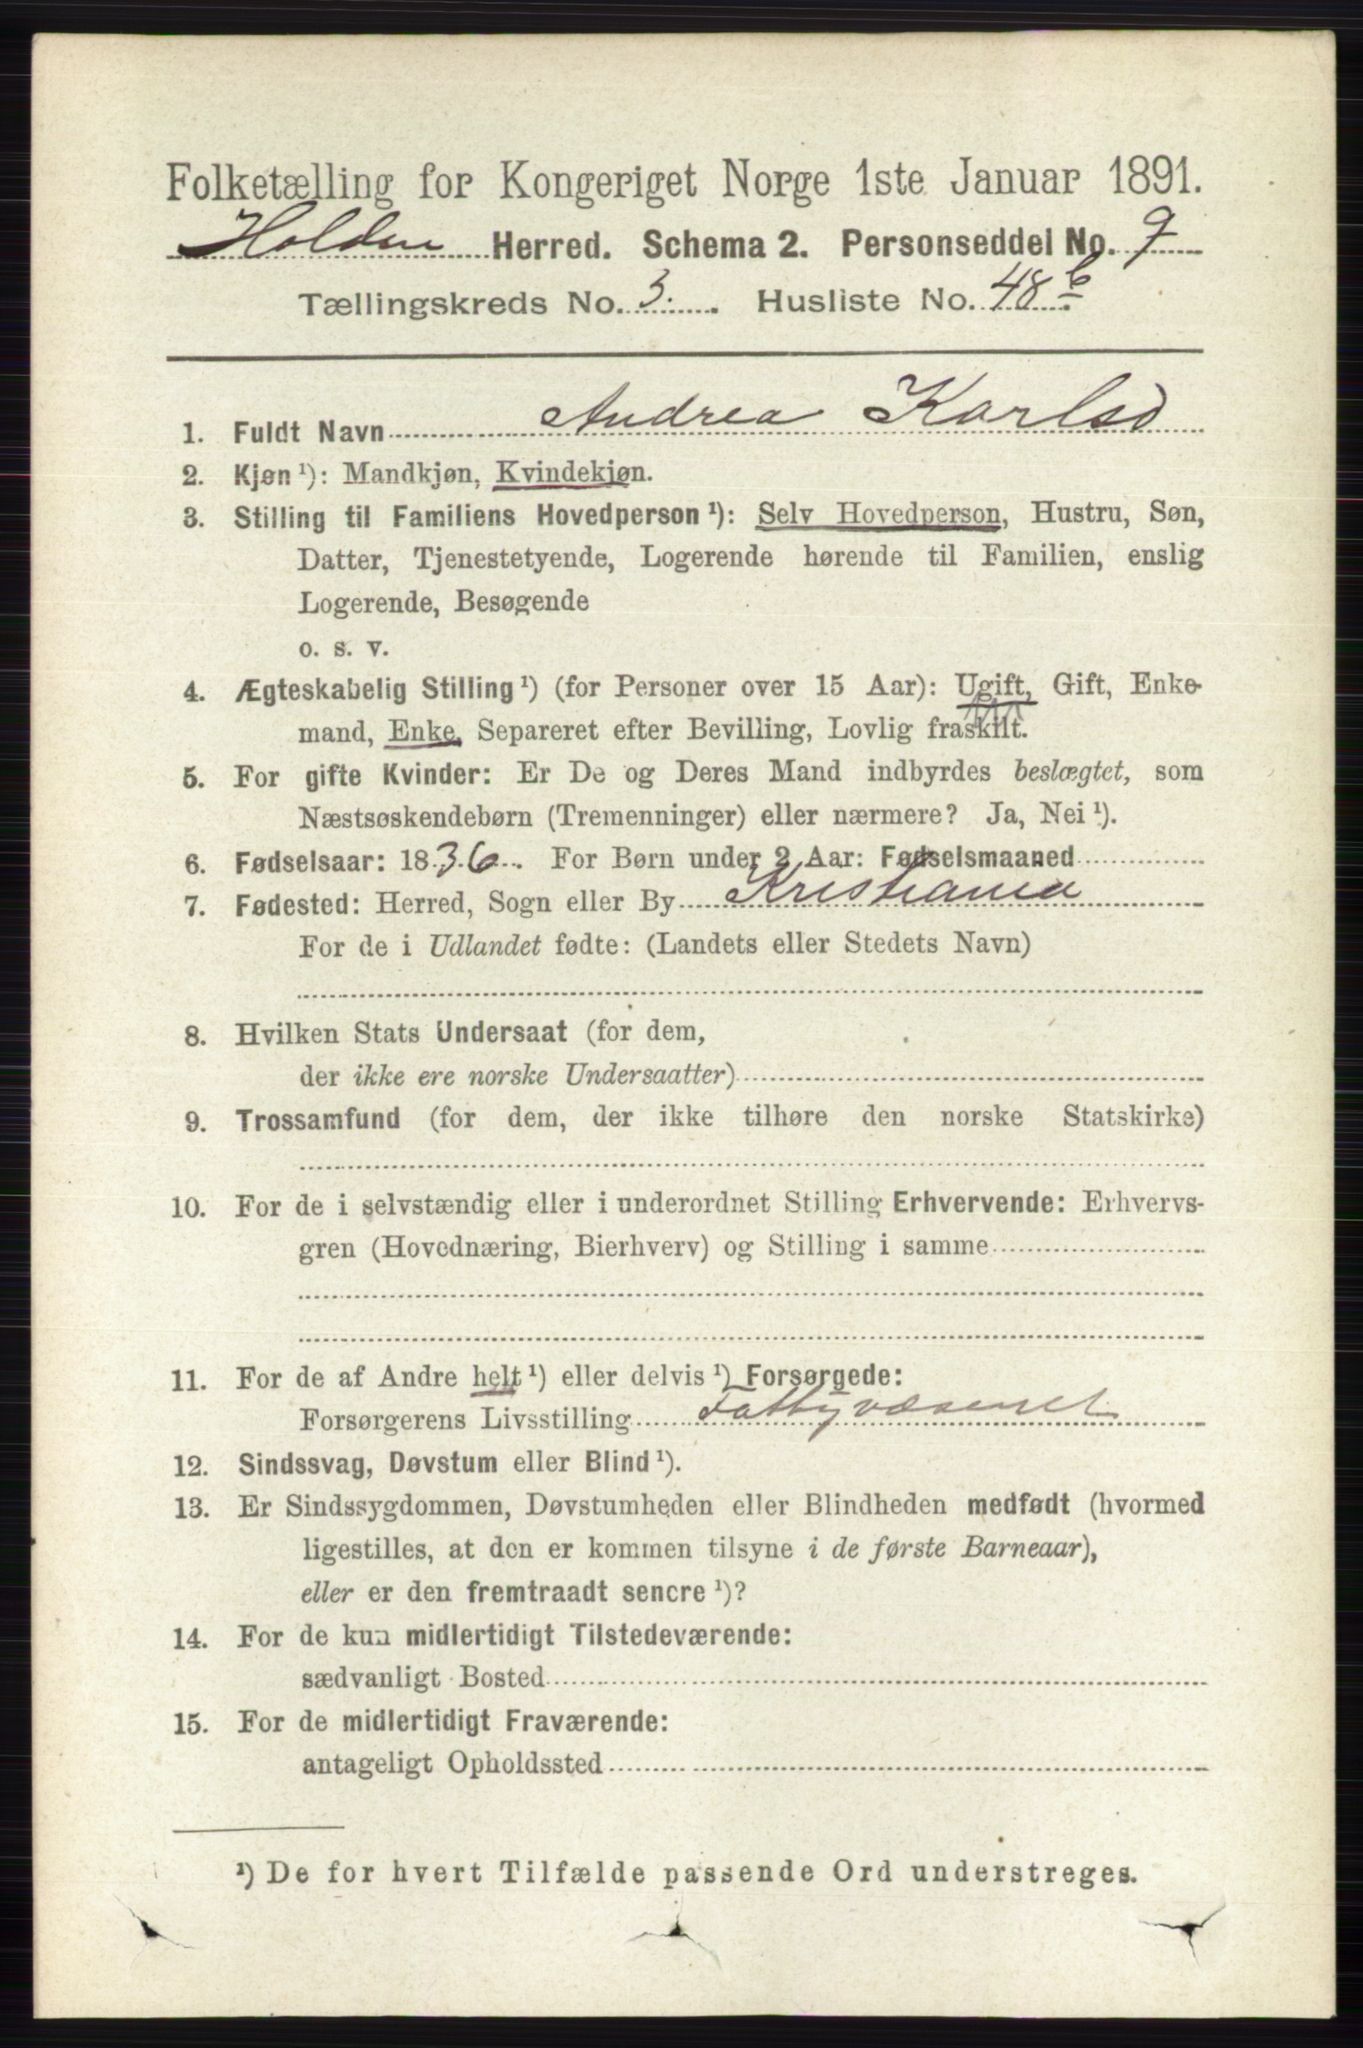 Folketælling for Kongeriget Norge 1ste Januar 1891.
Holden Herred. Schema 2. Personseddel No. 9
Tællingskreds No. 3. Husliste No. 48 b
1. Fuldt Navn Andrea Karlsd
2. Kjøn ¹): Mandkjøn, Kvindekjøn.
3. Stilling til Familiens Hovedperson ¹): Selv Hovedperson, Hustru, Søn,
Datter, Tjenestetyende, Logerende hørende til Familien, enslig
Logerende, Besøgende
o. s. v.
4. Ægteskabelig Stilling ¹) (for Personer over 15 Aar): Ugift, Gift, Enke-
mand, Enke, Separeret efter Bevilling, Lovlig fraskilt.
5. For gifte Kvinder: Er De og Deres Mand indbyrdes beslægtet, som
Næstsøskendebørn (Tremenninger) eller nærmere? Ja, Nei ¹).
6. Fødselsaar: 1836. For Børn under 2 Aar: Fødselsmaaned
7. Fødested: Herred, Sogn eller By Kristiania
For de i Udlandet fødte: (Landets eller Stedets Navn)
8. Hvilken Stats Undersaat (for dem,
der ikke ere norske Undersaatter)
9. Trossamfund (for dem, der ikke tilhøre den norske Statskirke)
10. For de i selvstændig eller i underordnet Stilling Erhvervende: Erhvervs-
gren (Hovednæring, Bierhverv) og Stilling i samme
11. For de af Andre helt ¹) eller delvis ¹) Forsørgede:
Forsørgerens Livsstilling Fattigvæsenet
12. Sindssvag, Døvstum eller Blind ¹).
13. Er Sindssygdommen, Døvstumheden eller Blindheden medfødt (hvormed
ligestilles, at den er kommen tilsyne i de første Barneaar),
eller er den fremtraadt senere ¹)?
14. For de kun midlertidigt Tilstedeværende:
sædvanligt Bosted
15. For de midlertidigt Fraværende:
antageligt Opholdssted
¹) De for hvert Tilfælde passende Ord understreges.